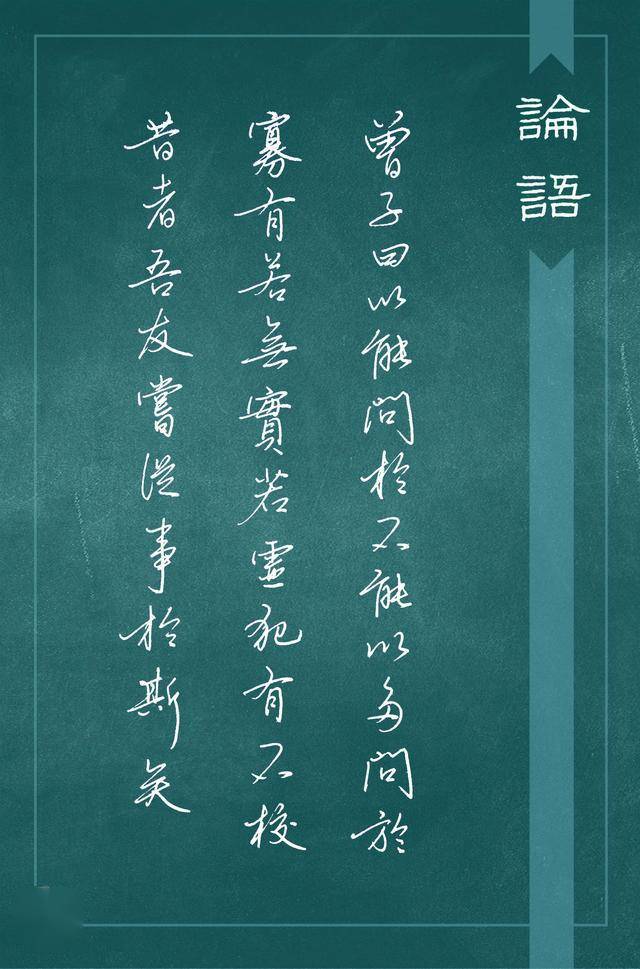 論語
曾子曰以能問於不能以多問於
寡有若無實若虛犯有不校
昔者吾友嘗從事於斯矣